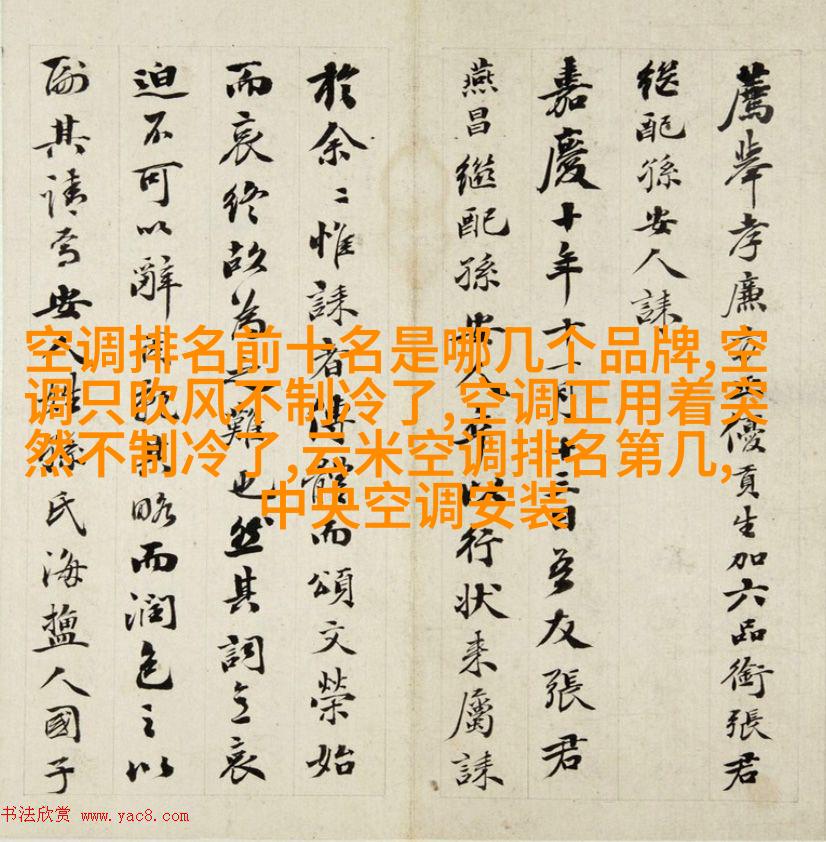 薦舉孝廉方正優貢生加六品銜張君
継配孫安人誄
嘉慶十年十一月 吾友張君
燕昌繼配孫安人卒以行狀来屬誄
於余〻惟誄者傳體而頌文榮始
而哀終故為之難也然其詞主哀
迫不可以辭 其略而潤色之以
副其請焉安人姓孫氏海鹽人國子
空调排名前十名是哪几个品牌,空
调只吹风不制冷了,空调正用着突
然不制冷了,云米空调排名第几,
中央空调安装
书法欣赏 www.yac8.com